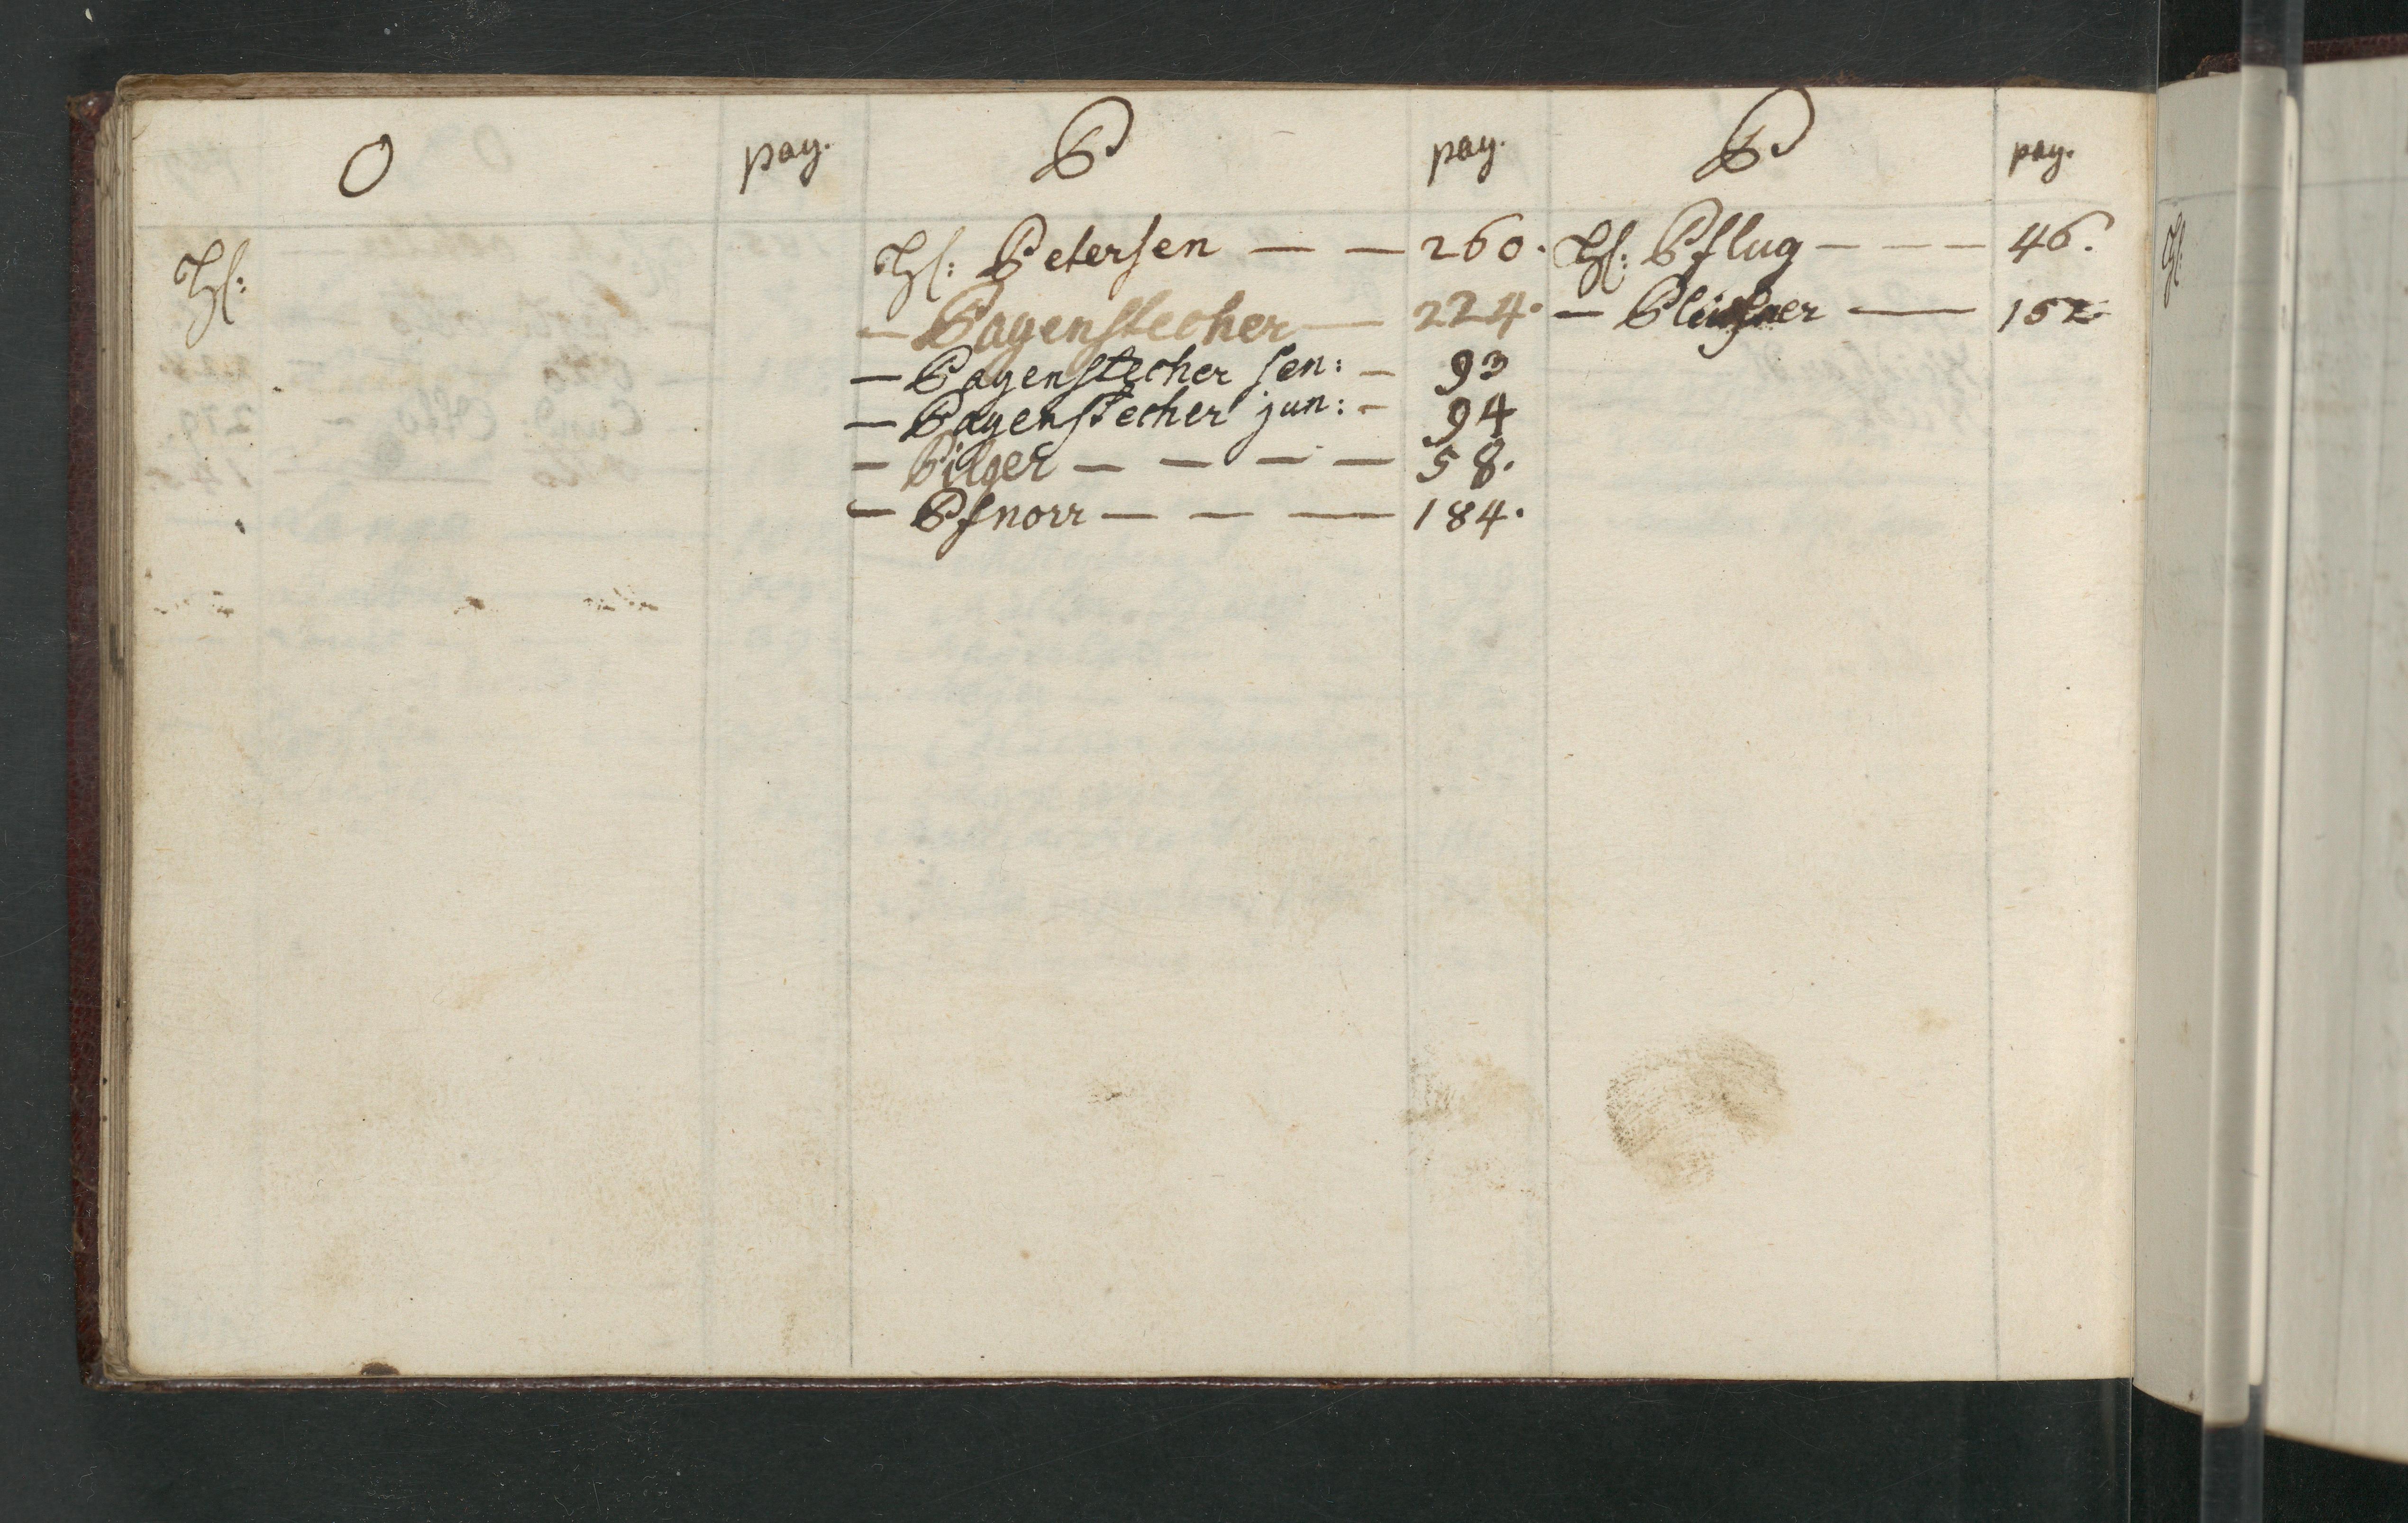 O pag. P pag. P pag.
H:
H: Petersen — — 260. H: Pflug — — — 46.
— Pagenstecher — 224. — Plüsner — 152
— Pagenstecher sen: — 93
— Pagenstecher jun: — 94
— Pilger — — — — 58.
— Pfnorr — — — 184.